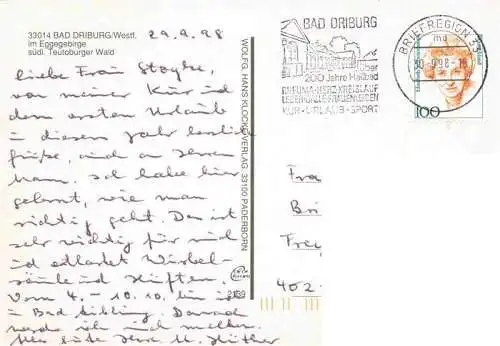 33014 BAD DRIBURG/Westf.
im Eggegebirge
südl. Teutoburger Wald
29.9.98
Liebe Frau
von meiner Kur und
dem ersten Urlaub
in diesem Jahr herzlich
Grüße, auch an Ihren
Mann. Ich habe hier
gelernt, wie man
richtig geht. Das ist
sehr wichtig für mich
und entlastet Wirbel-
säule und Hüften.
Vom 4. - 10.10. bin ich
in Bad Aibling. Danach
werde ich mich melden.
Alles Gute Ihre H.
WOLFG. HANS KLOCKE VERLAG, 33100 PADERBORN
BAD DRIBURG
über
200 Jahre Heilbad
RHEUMA-HERZ-KREISLAUF
LEBER-GALLE-FRAUENLEIDEN
KUR-URLAUB-SPORT
BRIEFREGION 33
md
30.-9.98.-18
100
Fra
Bri
Frey
402